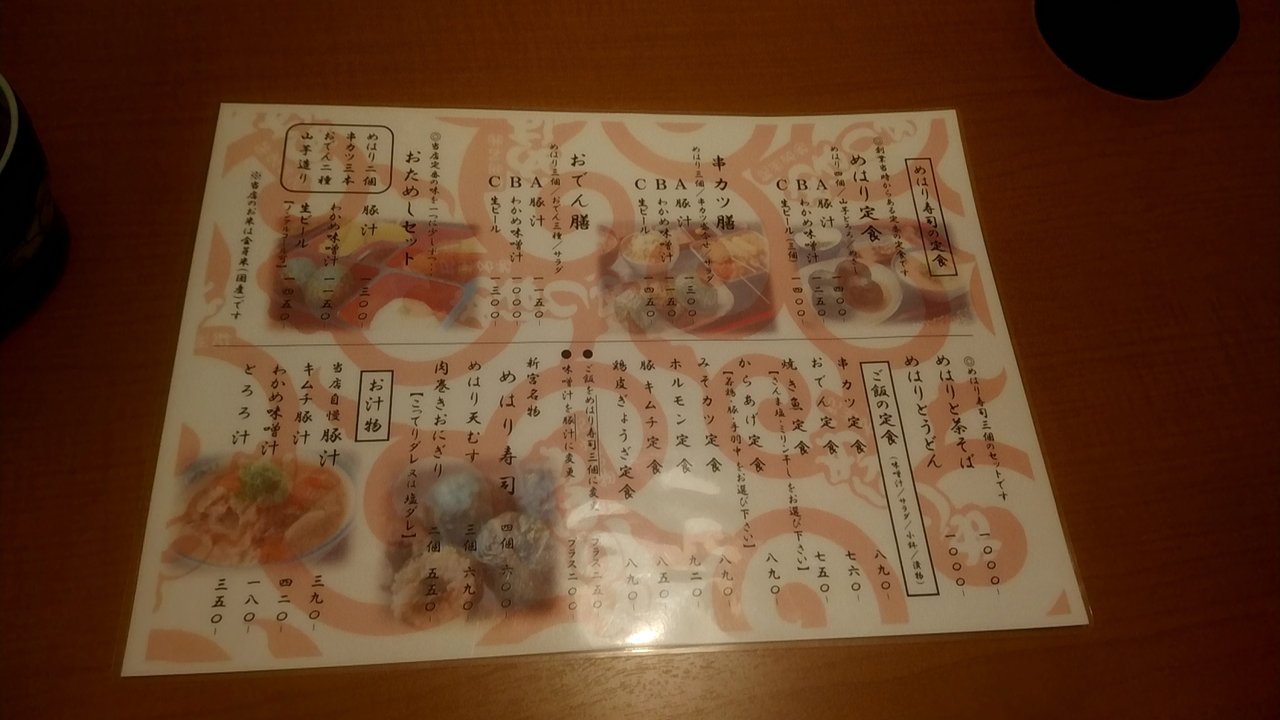 めはり寿司の定食
◎創業当時からある定番の定食です
めはり定食
めはり四個/山芋とろろ
A 豚汁 一四〇〇-
B わかめ味噌汁 一二五〇-
C 生ビール(三個) 一四〇〇-
串カツ膳
めはり三個/串カツ/サラダ
A 豚汁 一三〇〇-
B わかめ味噌汁 一一五〇-
C 生ビール 一四五〇-
おでん膳
めはり三個/おでん三種/サラダ
A 豚汁 一一五〇-
B わかめ味噌汁 一〇〇〇-
C 生ビール 一三〇〇-
◎当店定番の味を一つに少しずつ…
おためしセット
めはり二個
串カツ三本
おでん二種
山芋造り
豚汁 一三〇〇-
わかめ味噌汁 一一五〇-
生ビール 一四五〇-
※当店のお米は金芽米(国産)です
◎めはり寿司三個のセットです
めはりと茶そば 一〇〇〇-
めはりとうどん 一〇〇〇-
ご飯の定食(味噌汁/サラダ/小鉢/漬物)
串カツ定食 八九〇-
おでん定食 七六〇-
焼き魚定食 七五〇-
【さんま塩・みりん干しをお選び下さい】
からあげ定食 八九〇-
【若鶏・豚・手羽中をお選び下さい】
みそカツ定食 八九〇-
ホルモン定食 九二〇-
豚キムチ定食 八五〇-
鶏皮ぎょうざ定食 八九〇-
●ご飯をめはり寿司三個に変更 プラス二五〇
●味噌汁を豚汁に変更 プラス二〇〇
新宮名物
めはり寿司 四個 六〇〇-
めはり天むす 三個 六九〇-
肉巻きおにぎり 二個 五五〇-
【こってりダレ又は塩ダレ】
お汁物
当店自慢豚汁 三九〇-
キムチ豚汁 四二〇-
わかめ味噌汁 一八〇-
とろろ汁 三五〇-